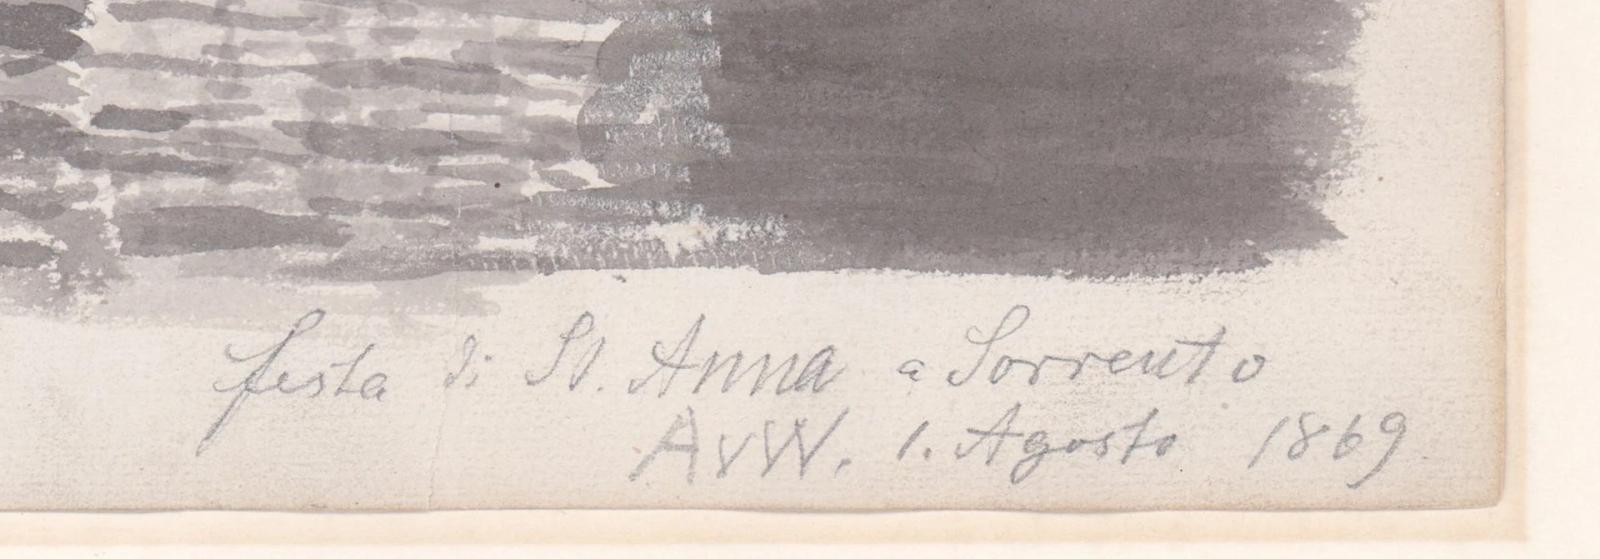 festa di St. Anna a Sorrento
AvW. 1. Agosto 1869